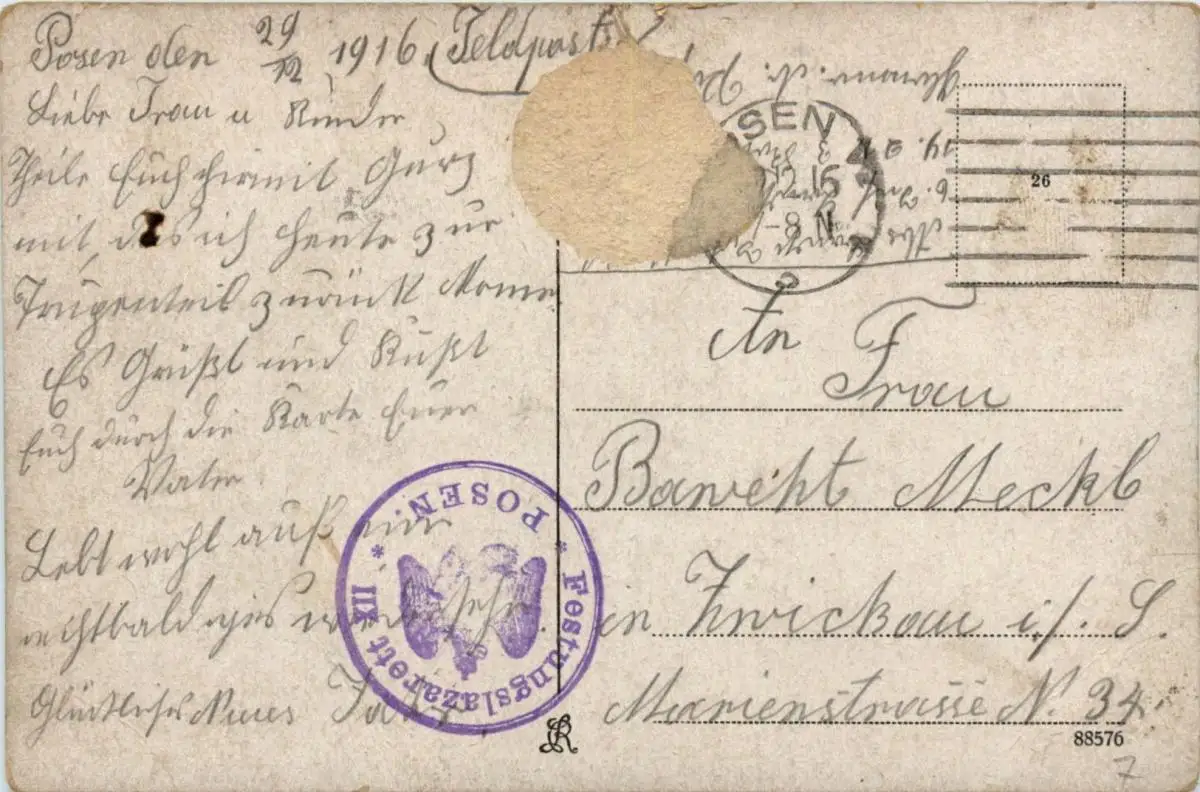 Posen den 29/12 1916. Feldpost
Liebe Frau u Kinder
Theile Euch hirmit Gurz
mit, das ich heute zur
Trupenteil zurück komme
Es Grüßt und Küßt
Euch durch die Karte Euer
Vater
Lebt wohl auf ein
rechtbaldiges wiedersehn.
Glückliches Neues Jahr
OSEN
12 16
-8 N
26
An
Frau
Barweht Meckl
in Zwickau i/. S.
Marienstrasse N. 34.
* Festungslazarett XII * POSEN.
88576
7